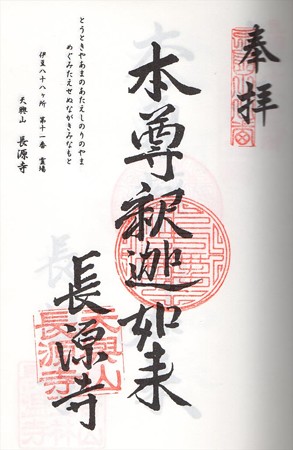 奉拝
本尊釈迦如来
長源寺
とうときやあまのあたえしのりのやま
めぐみたえせぬながきみなもと
伊豆八十八ヶ所 第十一番 霊場
天與山 長源寺
天與山
長源寺